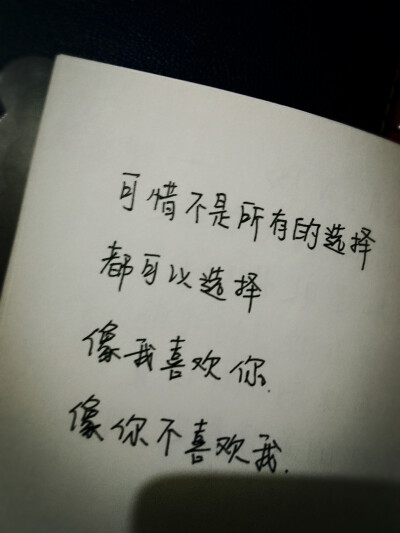 可惜不是所有的选择
都可以选择
像我喜欢你.
像你不喜欢我.